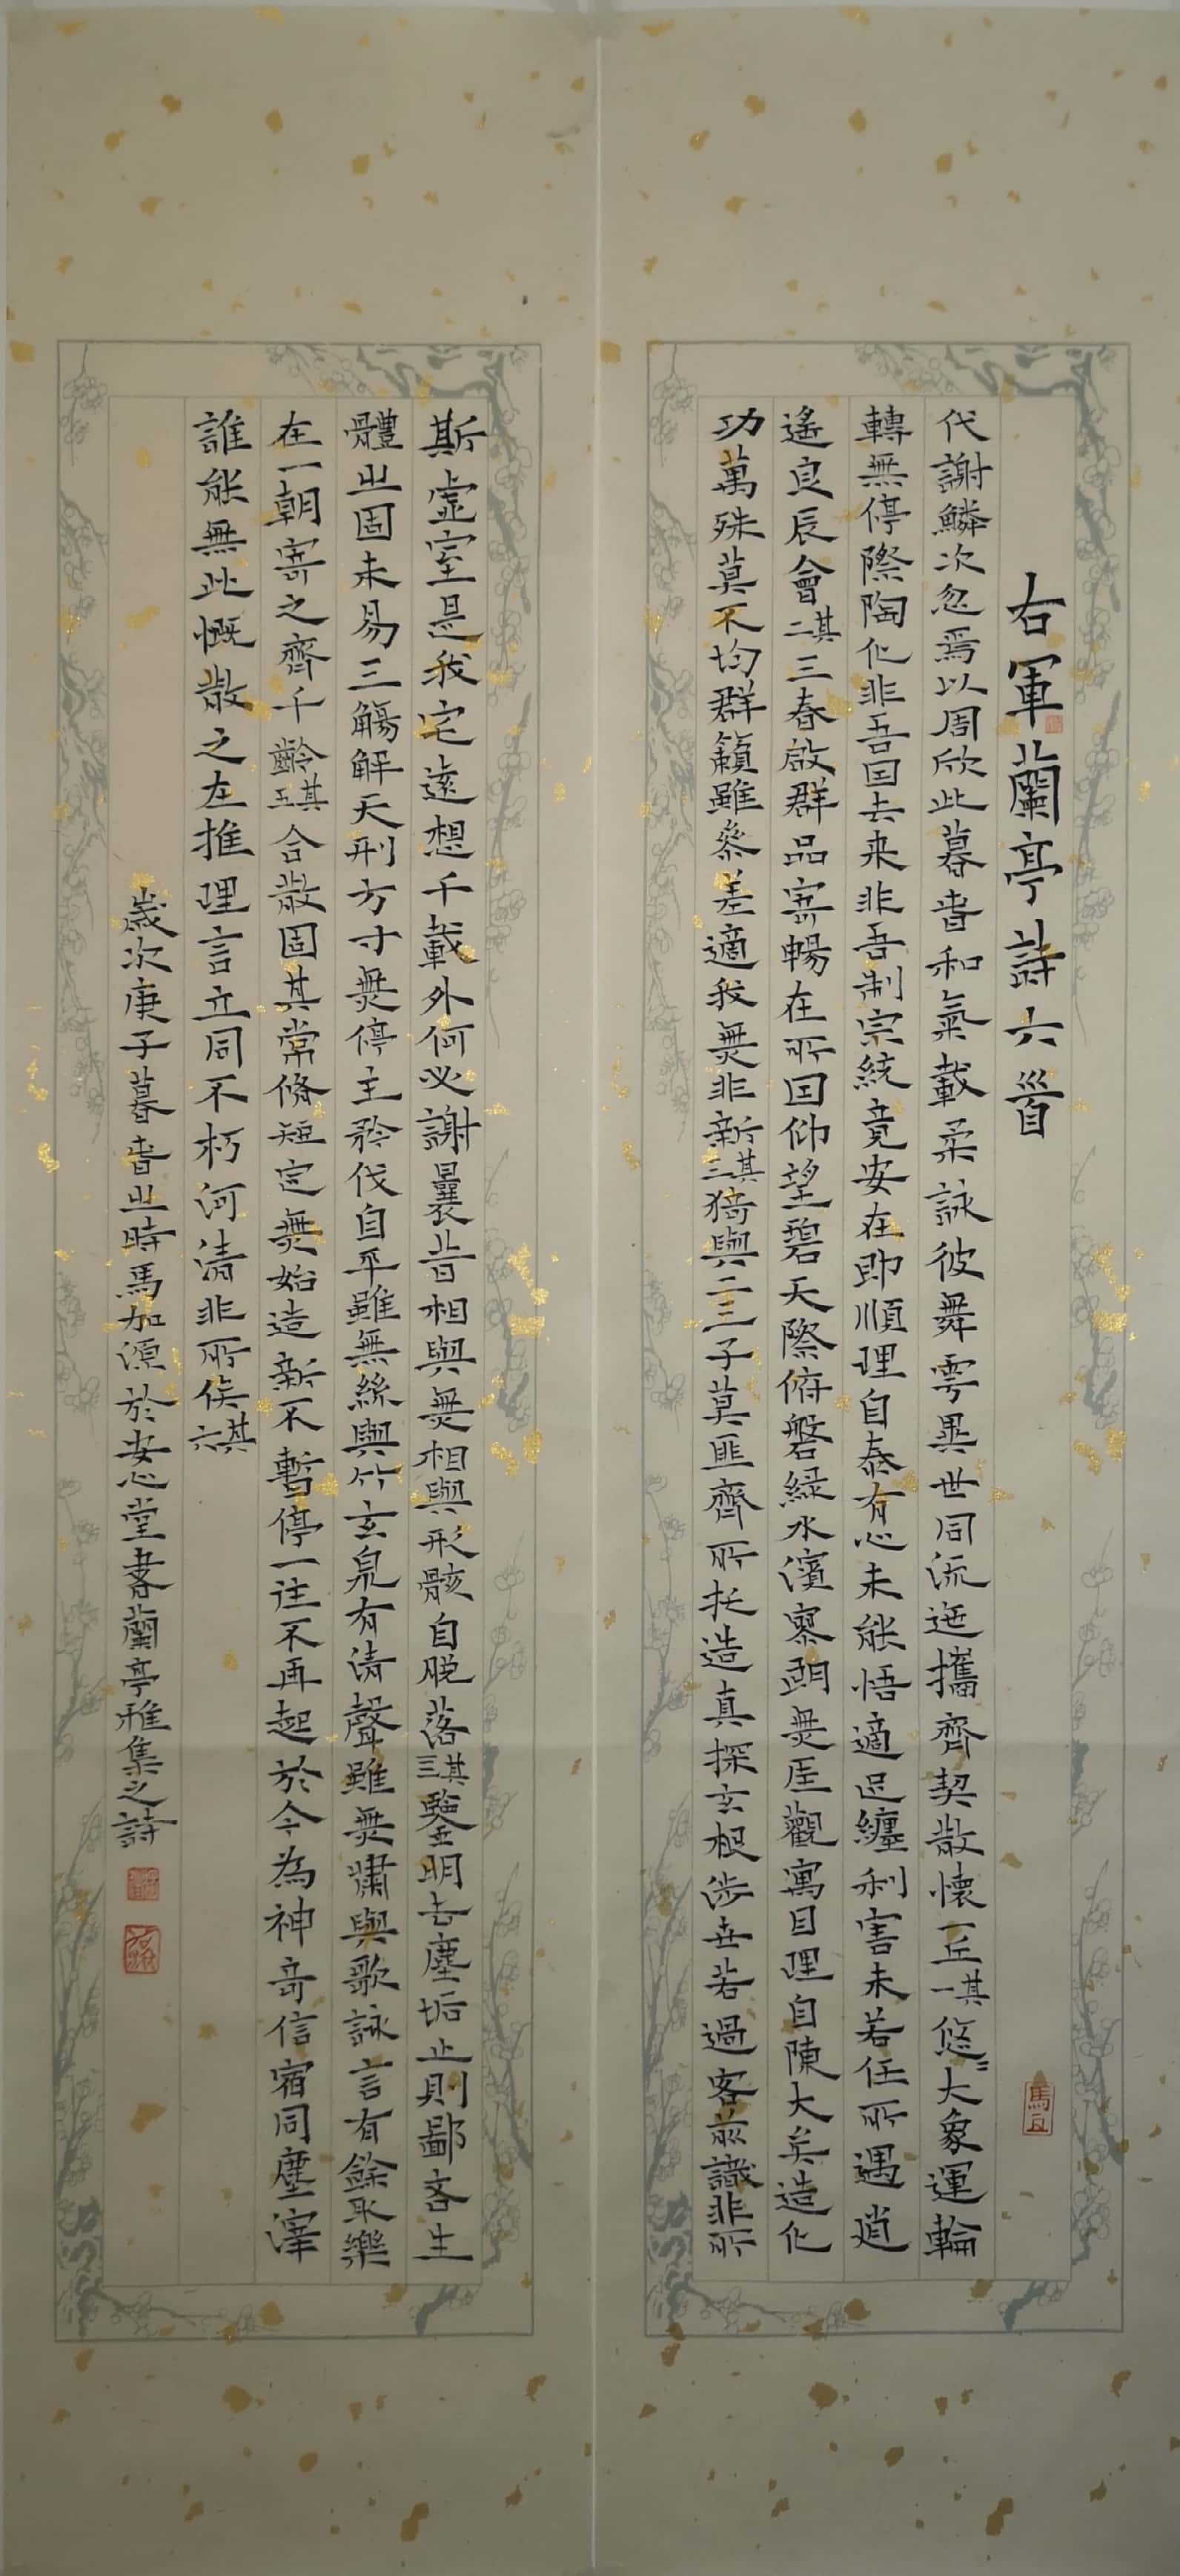 右軍蘭亭詩六首
代謝鱗次忽焉以周欣此暮春和氣載柔詠彼舞雩異世同流迤攜齊契散懷一丘其一悠〻大象運輪
轉無停際陶化非吾因去来非吾制宗統竟安在即順理自泰有心未能悟適足纏利害未若任所遇逍
遙良辰會其二三春啟群品寄暢在所因仰望碧天際俯磐緑水濱寥朗無厓觀寓目理自陳大矣造化
功萬殊莫不均群籟雖參差適我無非新其三猗與二三子莫匪齊所托造真探玄根涉世若過客前識非所
斯虛室是我宅遠想千載外何必謝曩昔相與無相與形骸自脱落其三鑒明去塵垢止則鄙吝生
體之固未易三觴解天刑方寸無停主矜伐自平雖無絲與竹玄泉有清聲雖無嘯與歌詠言有餘馨取樂
在一朝寄之齊千齡其五合散固其常脩短定無始造新不暫停一往不再起於今為神奇信宿同塵滓
誰能無此慨散之在推理言立同不朽河清非所俟其六
歲次庚子暮春之時馬加源於安心堂書蘭亭雅集之詩